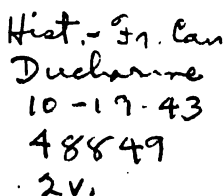 Hist. - Fr. Can
Ducharme
10-19-43
48849
2v.